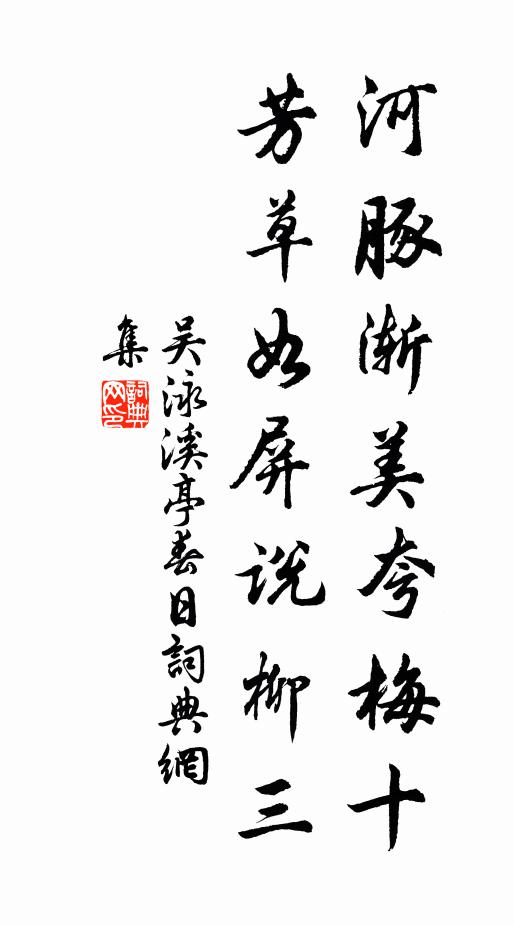 河豚渐美夸梅十
芳草如屏说柳三
吴泳溪亭春日詞典網
集
詞典
网印